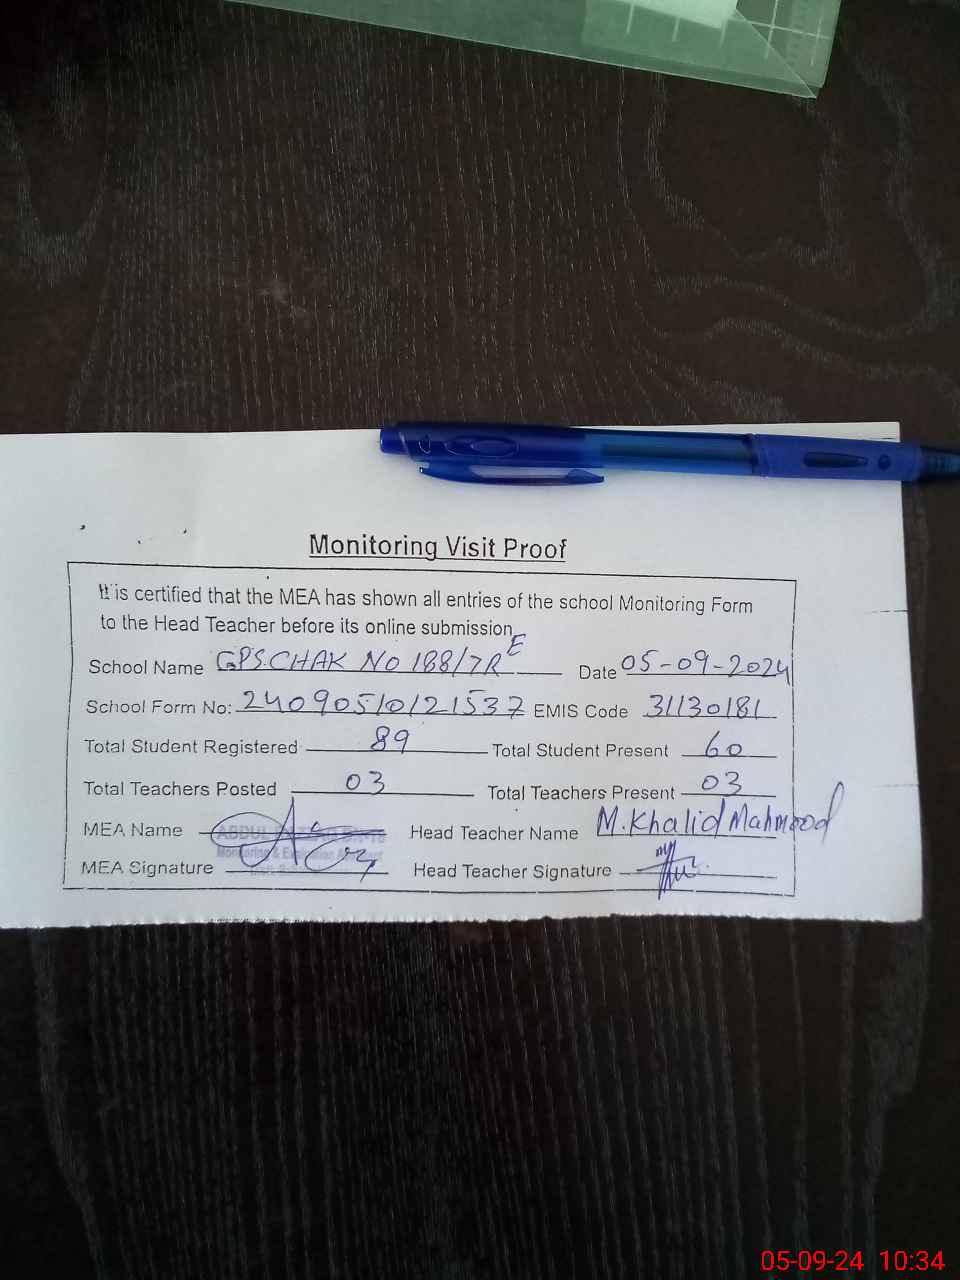 Monitoring Visit Proof
It is certified that the MEA has shown all entries of the school Monitoring Form
to the Head Teacher before its online submission
School Name GPS CHAK NO 188/7R E Date 05-09-2024
School Form No: 24090510121537 EMIS Code 31130181
Total Student Registered 89 Total Student Present 60
Total Teachers Posted 03 Total Teachers Present 03
MEA Name ABDUL Head Teacher Name M. Khalid Mahmood
Monitoring &
MEA Signature Head Teacher Signature
05-09-24 10:34